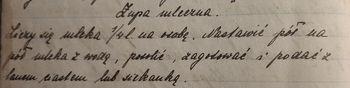 Zupa mleczna.
Liczy się mleka 1/4 l. na osobę. Nastawić pół na
pół mleka z wodą, posolić, zagotować i podać z
lanem ciastem lub sucharką.